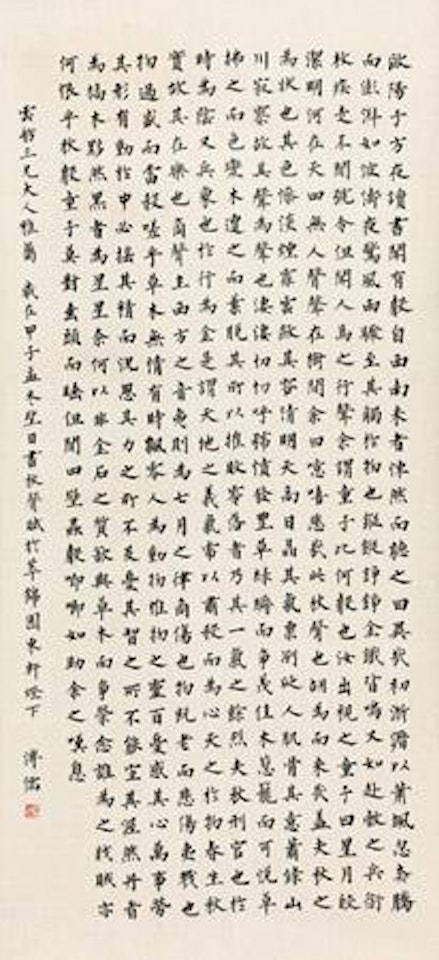 歐陽子方夜讀書聞有聲自西南來者悚然而聽之曰異哉初淅瀝以蕭颯忽奔騰
而澎湃如波濤夜驚風雨驟至其觸於物也鏦鏦錚錚金鐵皆鳴又如赴敵之兵銜
枚疾走不聞號令但聞人馬之行聲余謂童子此何聲也汝出視之童子曰星月皎
潔明河在天四無人聲聲在樹間余曰噫嘻悲哉此秋聲也胡為而來哉蓋夫秋之
為狀也其色慘淡煙霏雲斂其容清明天高日晶其氣栗冽砭人肌骨其意蕭條山
川寂寥故其聲為聲也淒淒切切呼號憤發豐草綠縟而爭茂佳木蔥籠而可悅草
拂之而色變木遭之而葉脫其所以摧敗零落者乃其一氣之餘烈夫秋刑官也於
時為陰又兵象也於行為金是謂天地之義氣常以肅殺而為心天之於物春生秋
實故其在樂也商聲主西方之音夷則為七月之律商傷也物既老而悲傷夷戮也
物過盛而當殺嗟乎草木無情有時飄零人為動物惟物之靈百憂感其心萬事勞
其形有動於中必搖其精而況思其力之所不及憂其智之所不能宜其渥然丹者
為槁木黟然黑者為星星奈何以非金石之質欲與草木而爭榮念誰為之戕賊亦
何恨乎秋聲童子莫對垂頭而睡但聞四壁蟲聲唧唧如助余之嘆息
三兄大人雅屬 歲在甲子孟冬望日書秋聲賦於萃錦園東軒燈下 溥儒